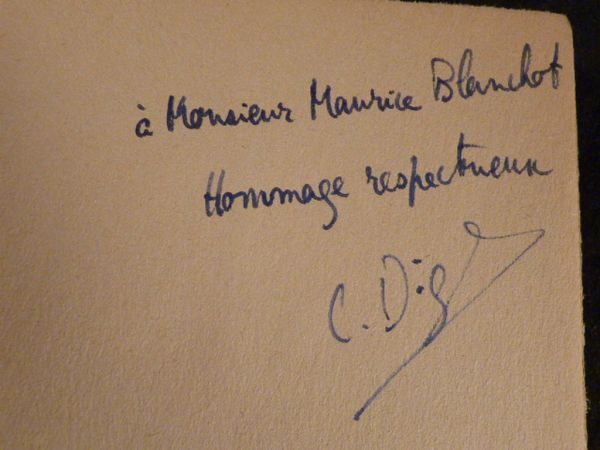 à Monsieur Maurice Blanchot
Hommage respectueux
C. Dig